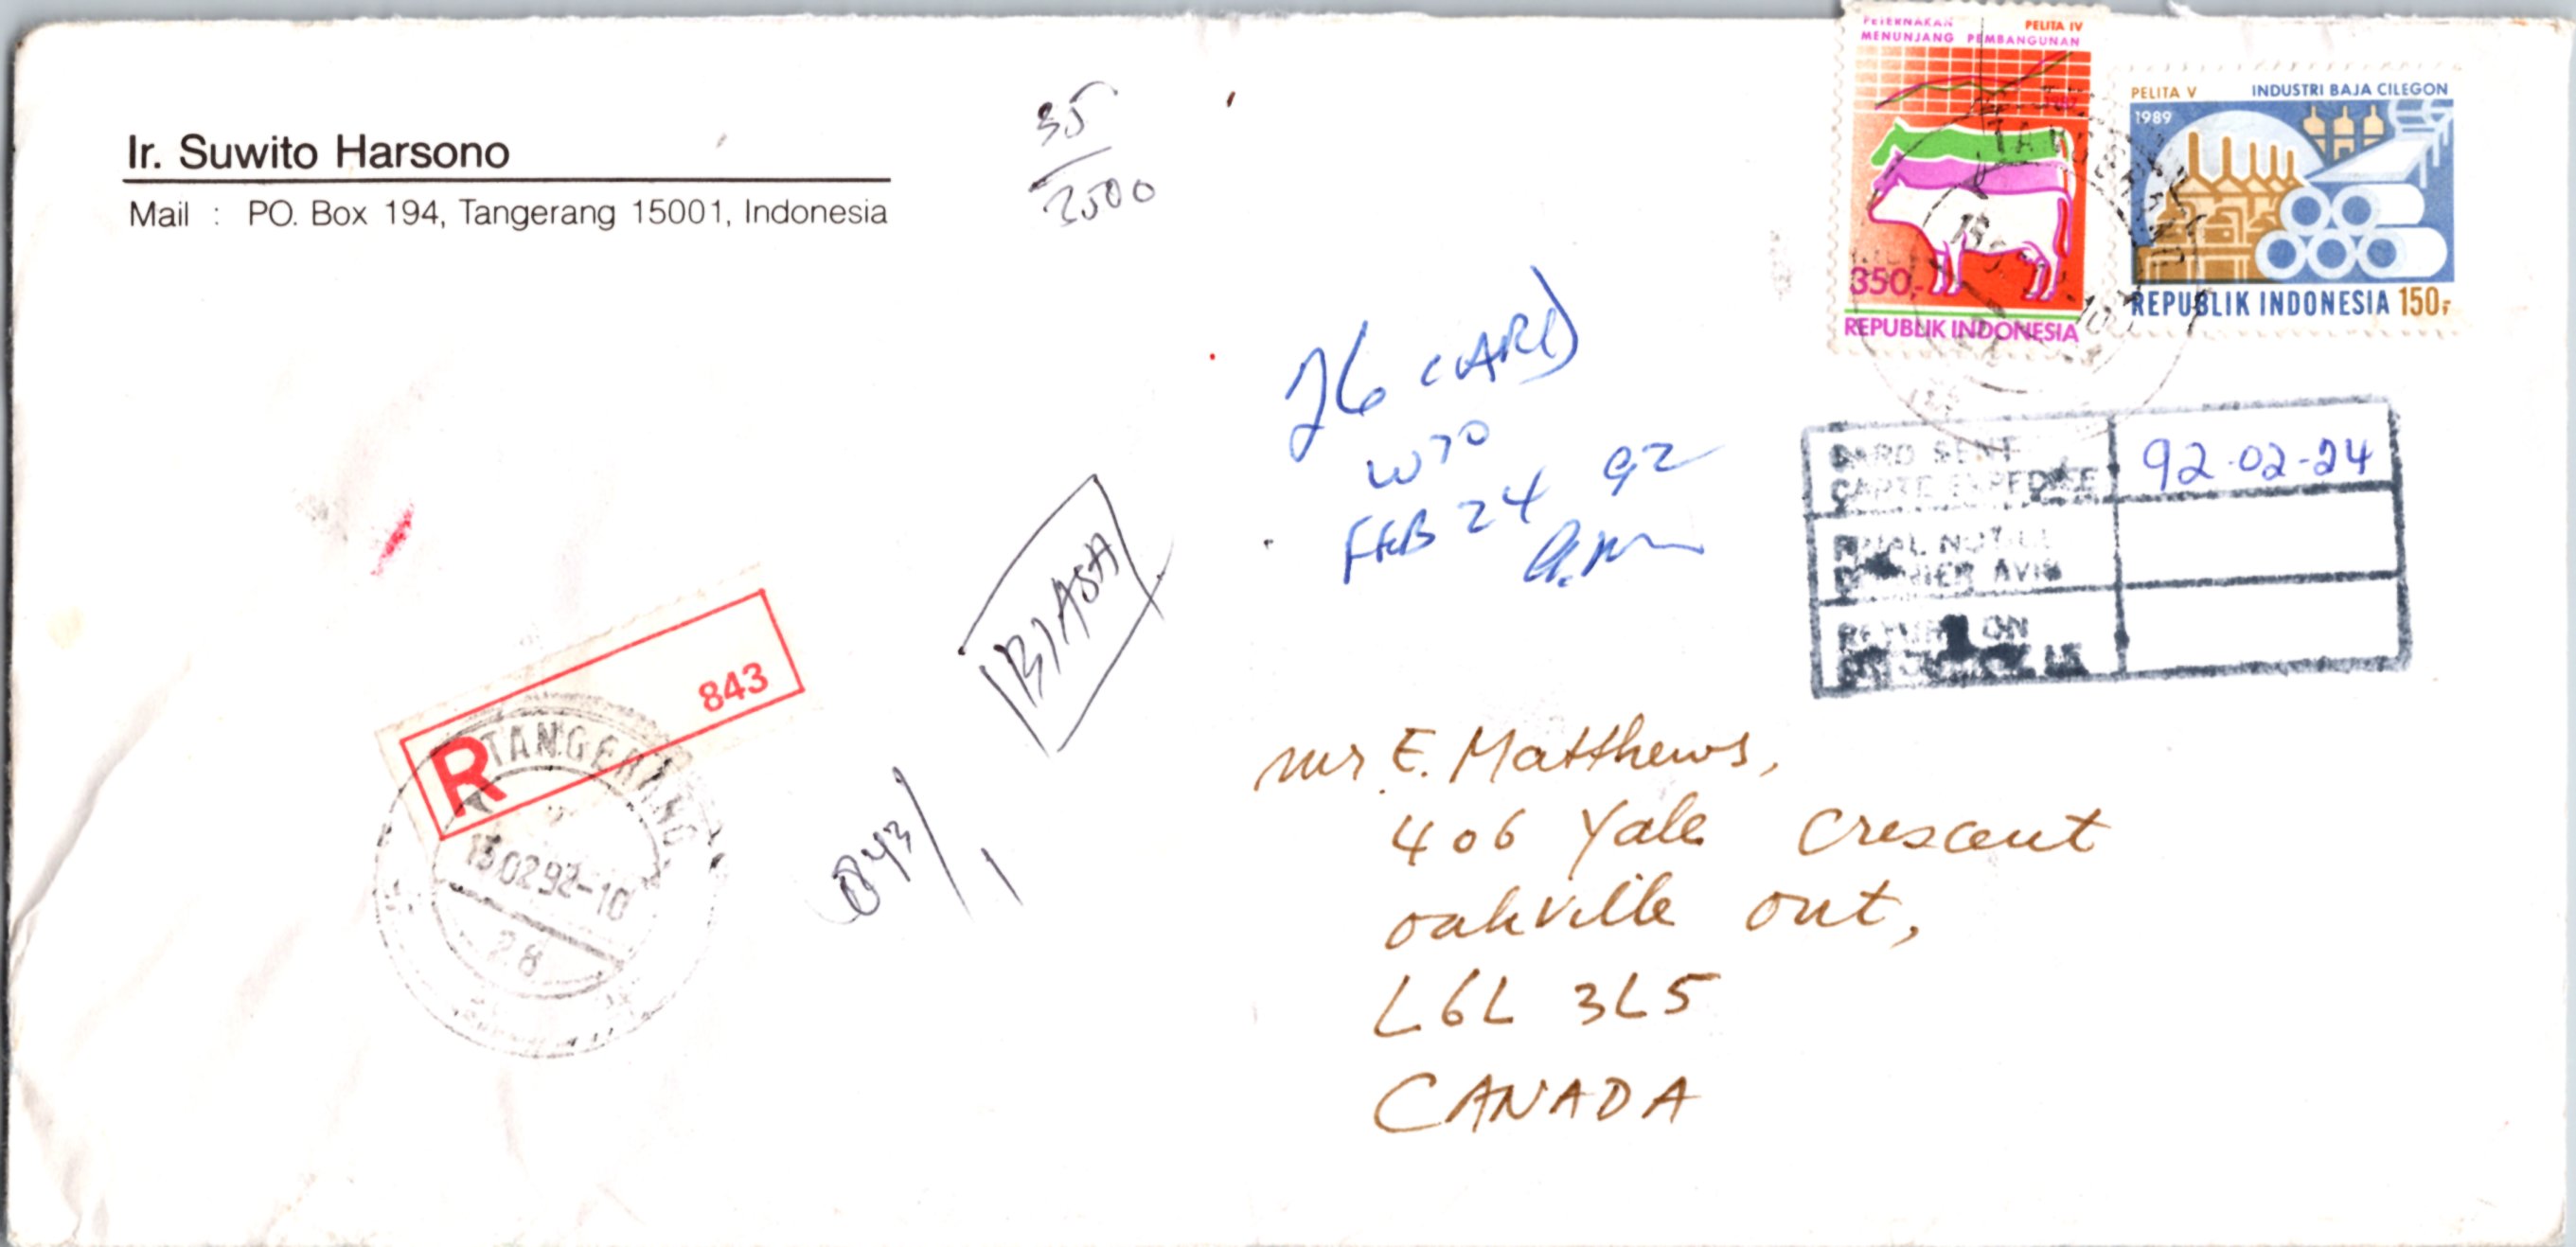 Ir. Suwito Harsono
Mail : PO. Box 194, Tangerang 15001, Indonesia
35
2500
PETERNAKAN PELITA IV
MENUNJANG PEMBANGUNAN
350,-
REPUBLIK INDONESIA
PELITA V INDUSTRI BAJA CILEGON
1989
REPUBLIK INDONESIA 150,-
TANGERANG
26 CARD
FEB 24 92
CARD SENT
CARTE EXPEDIEE
92-02-24
FINAL NOTICE
DERNIER AVIS
RETURN ON
BIASA
R 843
TANGERANG
13.02.92-10
28
843/1
Mr E. Matthews,
406 Yale Crescent
Oakville Ont,
L6L 3L5
CANADA